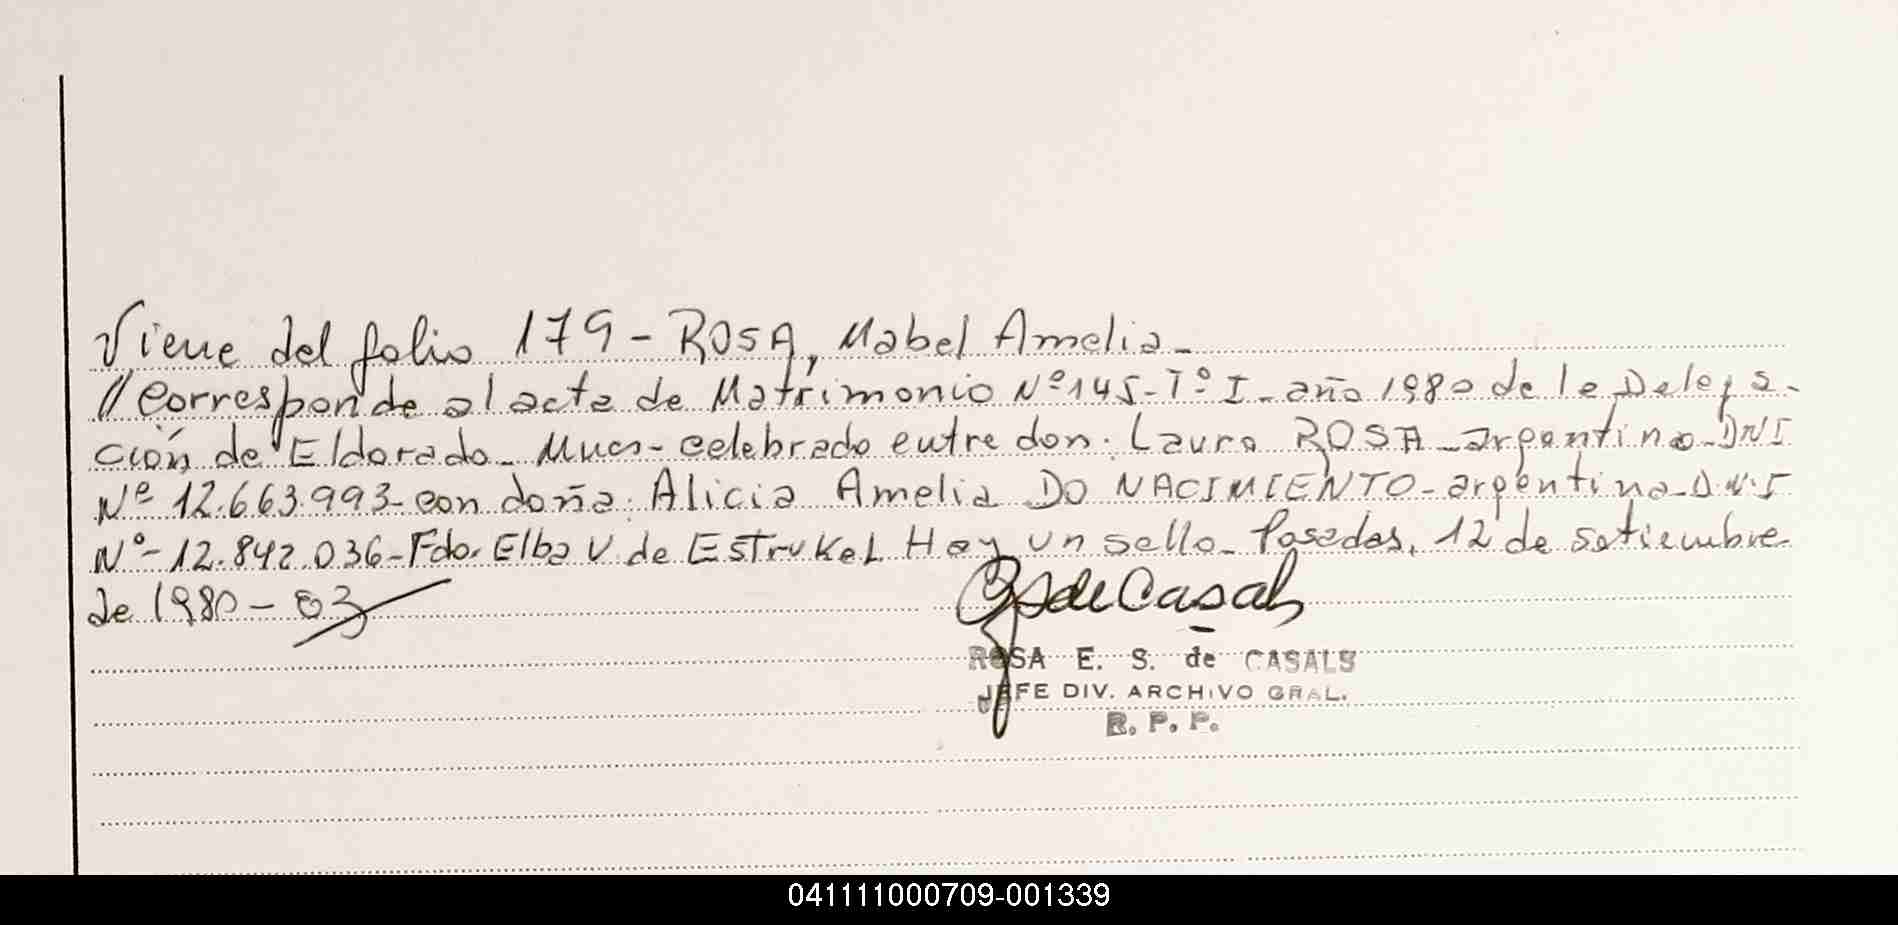 Viene del folio 179 - ROSA, Mabel Amelia -
// Corresponde al acta de Matrimonio Nº 145 - Tº I - año 1980 de la Delega-
ción de Eldorado - Mnes - celebrado entre don: Lauro ROSA - argentino - DNI
Nº 12.663.993 - con doña: Alicia Amelia DO NACIMIENTO - argentina - D.N.I
Nº - 12.842.036 - Fdo. Elba V. de EStrukel Hay un sello - Posadas, 12 de setiembre
de 1980 - 03
RSdeCasals
ROSA E. S. de CASALS
JEFE DIV. ARCHIVO GRAL.
R. P. P.
041111000709-001339